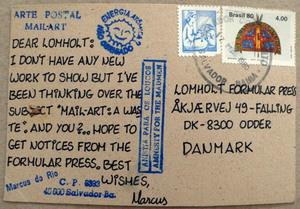 ARTE POSTAL
MAIL-ART
DEAR LOMHOLT:
I DON'T HAVE ANY NEW
WORK TO SHOW BUT I'VE
BEEN THINKING OVER THE
SUBJECT "MAIL-ART: A WAS
TE". AND YOU?... HOPE TO
GET NOTICES FROM THE
FORMULAR PRESS. BEST
WISHES,
Marcus
Marcus do Rio
C. P.
40000 Salvador-Ba.
ENERGIA
OBRIGADO
ANISTIA PARA OS LOUCOS
AMNESTY FOR THE MADMEN
Brasil 80 4.00
SALVADOR BAHIA
LOMHOLT FORMULAR PRESS
ÅKJÆRVEJ 49-FALLING
DK-8300 ODDER
DANMARK